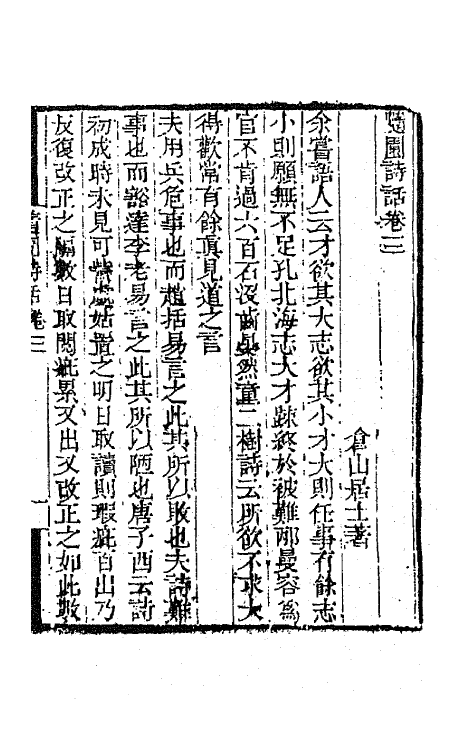 隨園詩話卷三
倉山居士著
余嘗語人云才欲其大志欲其小才大則任事有餘志
小則願無不足孔北海志大才疎終於被難邴曼容爲
官不肯過六百石沒齒晏然童二樹詩云所欲不求大
得歡常有餘眞見道之言
夫用兵危事也而趙括易言之此其所以敗也夫詩難
事也而豁達李老易言之此其所以陋也唐子西云詩
初成時未見可訾處姑置之明日取讀則瑕疵百出乃
反復改正之隔數日取閱疵累又出又改正之如此數
詩話卷三